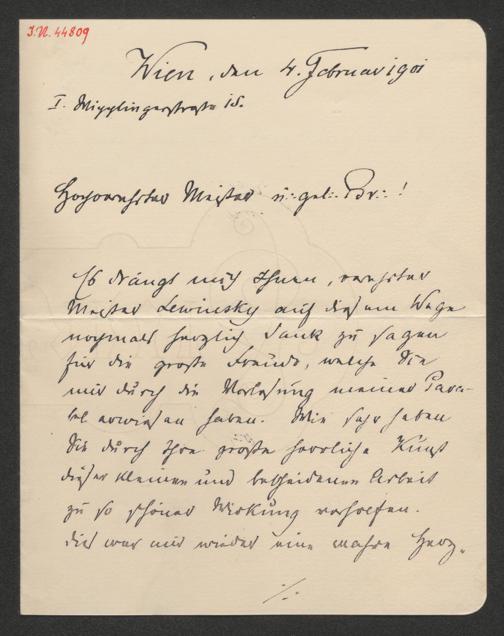 I.N. 44809
Wien, den 4. Februar 1901
I. Wipplingerstraße 15.
Hochverehrter Meister u:. gel:. Br:. !
Es drängt mich Ihnen, verehrter
Meister Lewinsky auf diesem Wege
nochmals herzlich Dank zu sagen
für die große Freude, welche Sie
mir durch die Vorlesung meiner Para-
bel erwiesen haben. Wie sehr haben
Sie durch Ihre große herrliche Kunst
dieser kleinen und bescheidenen Arbeit
zu so schöner Wirkung verholfen.
Dies war mir wieder eine wahre Herz-